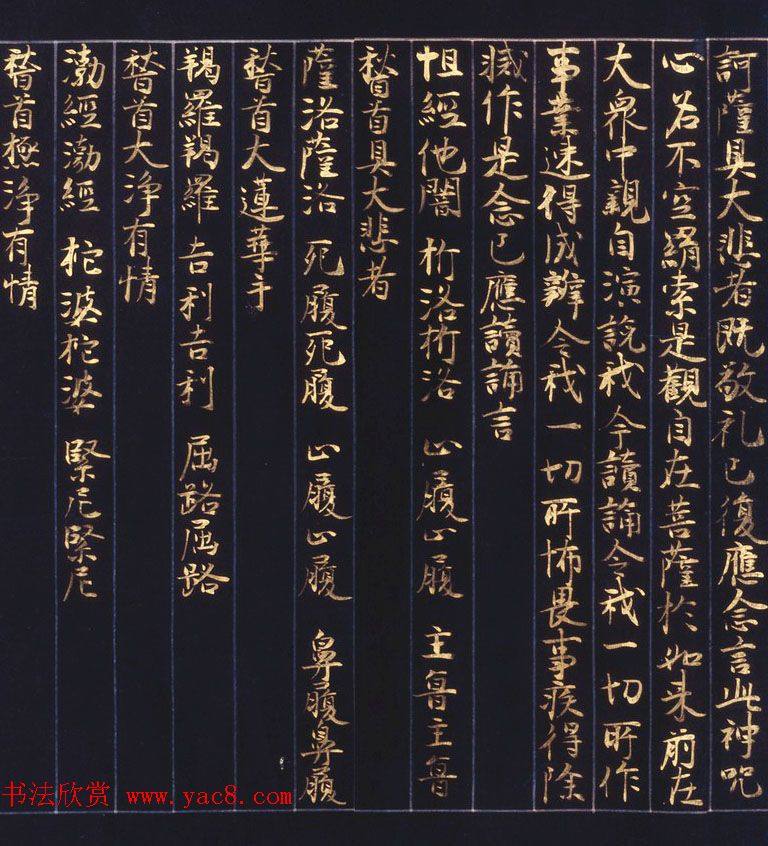 訶薩具大悲者既敬礼已復應念言此神呪
心名不空羂索是觀自在菩薩於如来前在
大衆中親自演說我今讀誦令我一切所作
事業速得成辦令我一切所怖畏事疾得除
滅作是念已應讀誦言
怛經他闇 桁洛桁洛 止履止履 主魯主魯
嵇首具大悲者
薩洛薩洛 死履死履 止履止履 鼻履鼻履
嵇首大蓮華手
羯羅羯羅 吉利吉利 屈路屈路
嵇首大淨有情
渤經渤經 柁婆柁婆 緊尼緊尼
嵇首極淨有情
书法欣赏 www.yac8.com